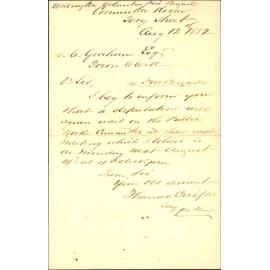 Wellington Volunteer Fire Brigade
Committee Room
Aug 12th 1882
C. C. Graham Esqr
Town Clerk
Dr Sir,
re Fire Brigade
I beg to inform you
that a deputation will
again wait on the Public
Works Committee at their next
meeting which I believe is
on Monday next August
14th at
I am Sir
Your Obt Servant
Thomas